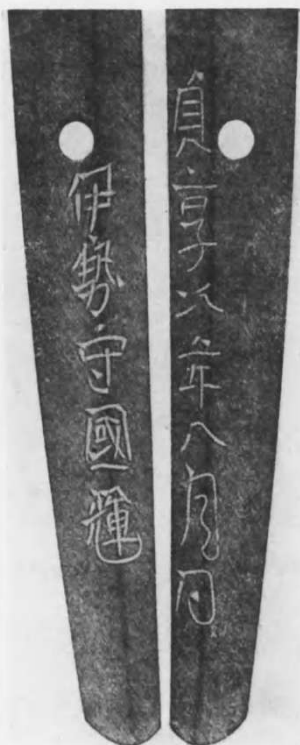 貞享次年八月日
伊勢守國輝